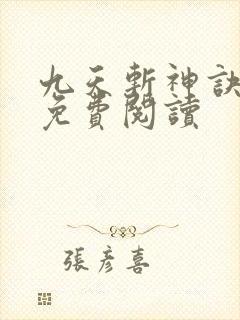 九天斬神訣
免費閱讀
張彥喜